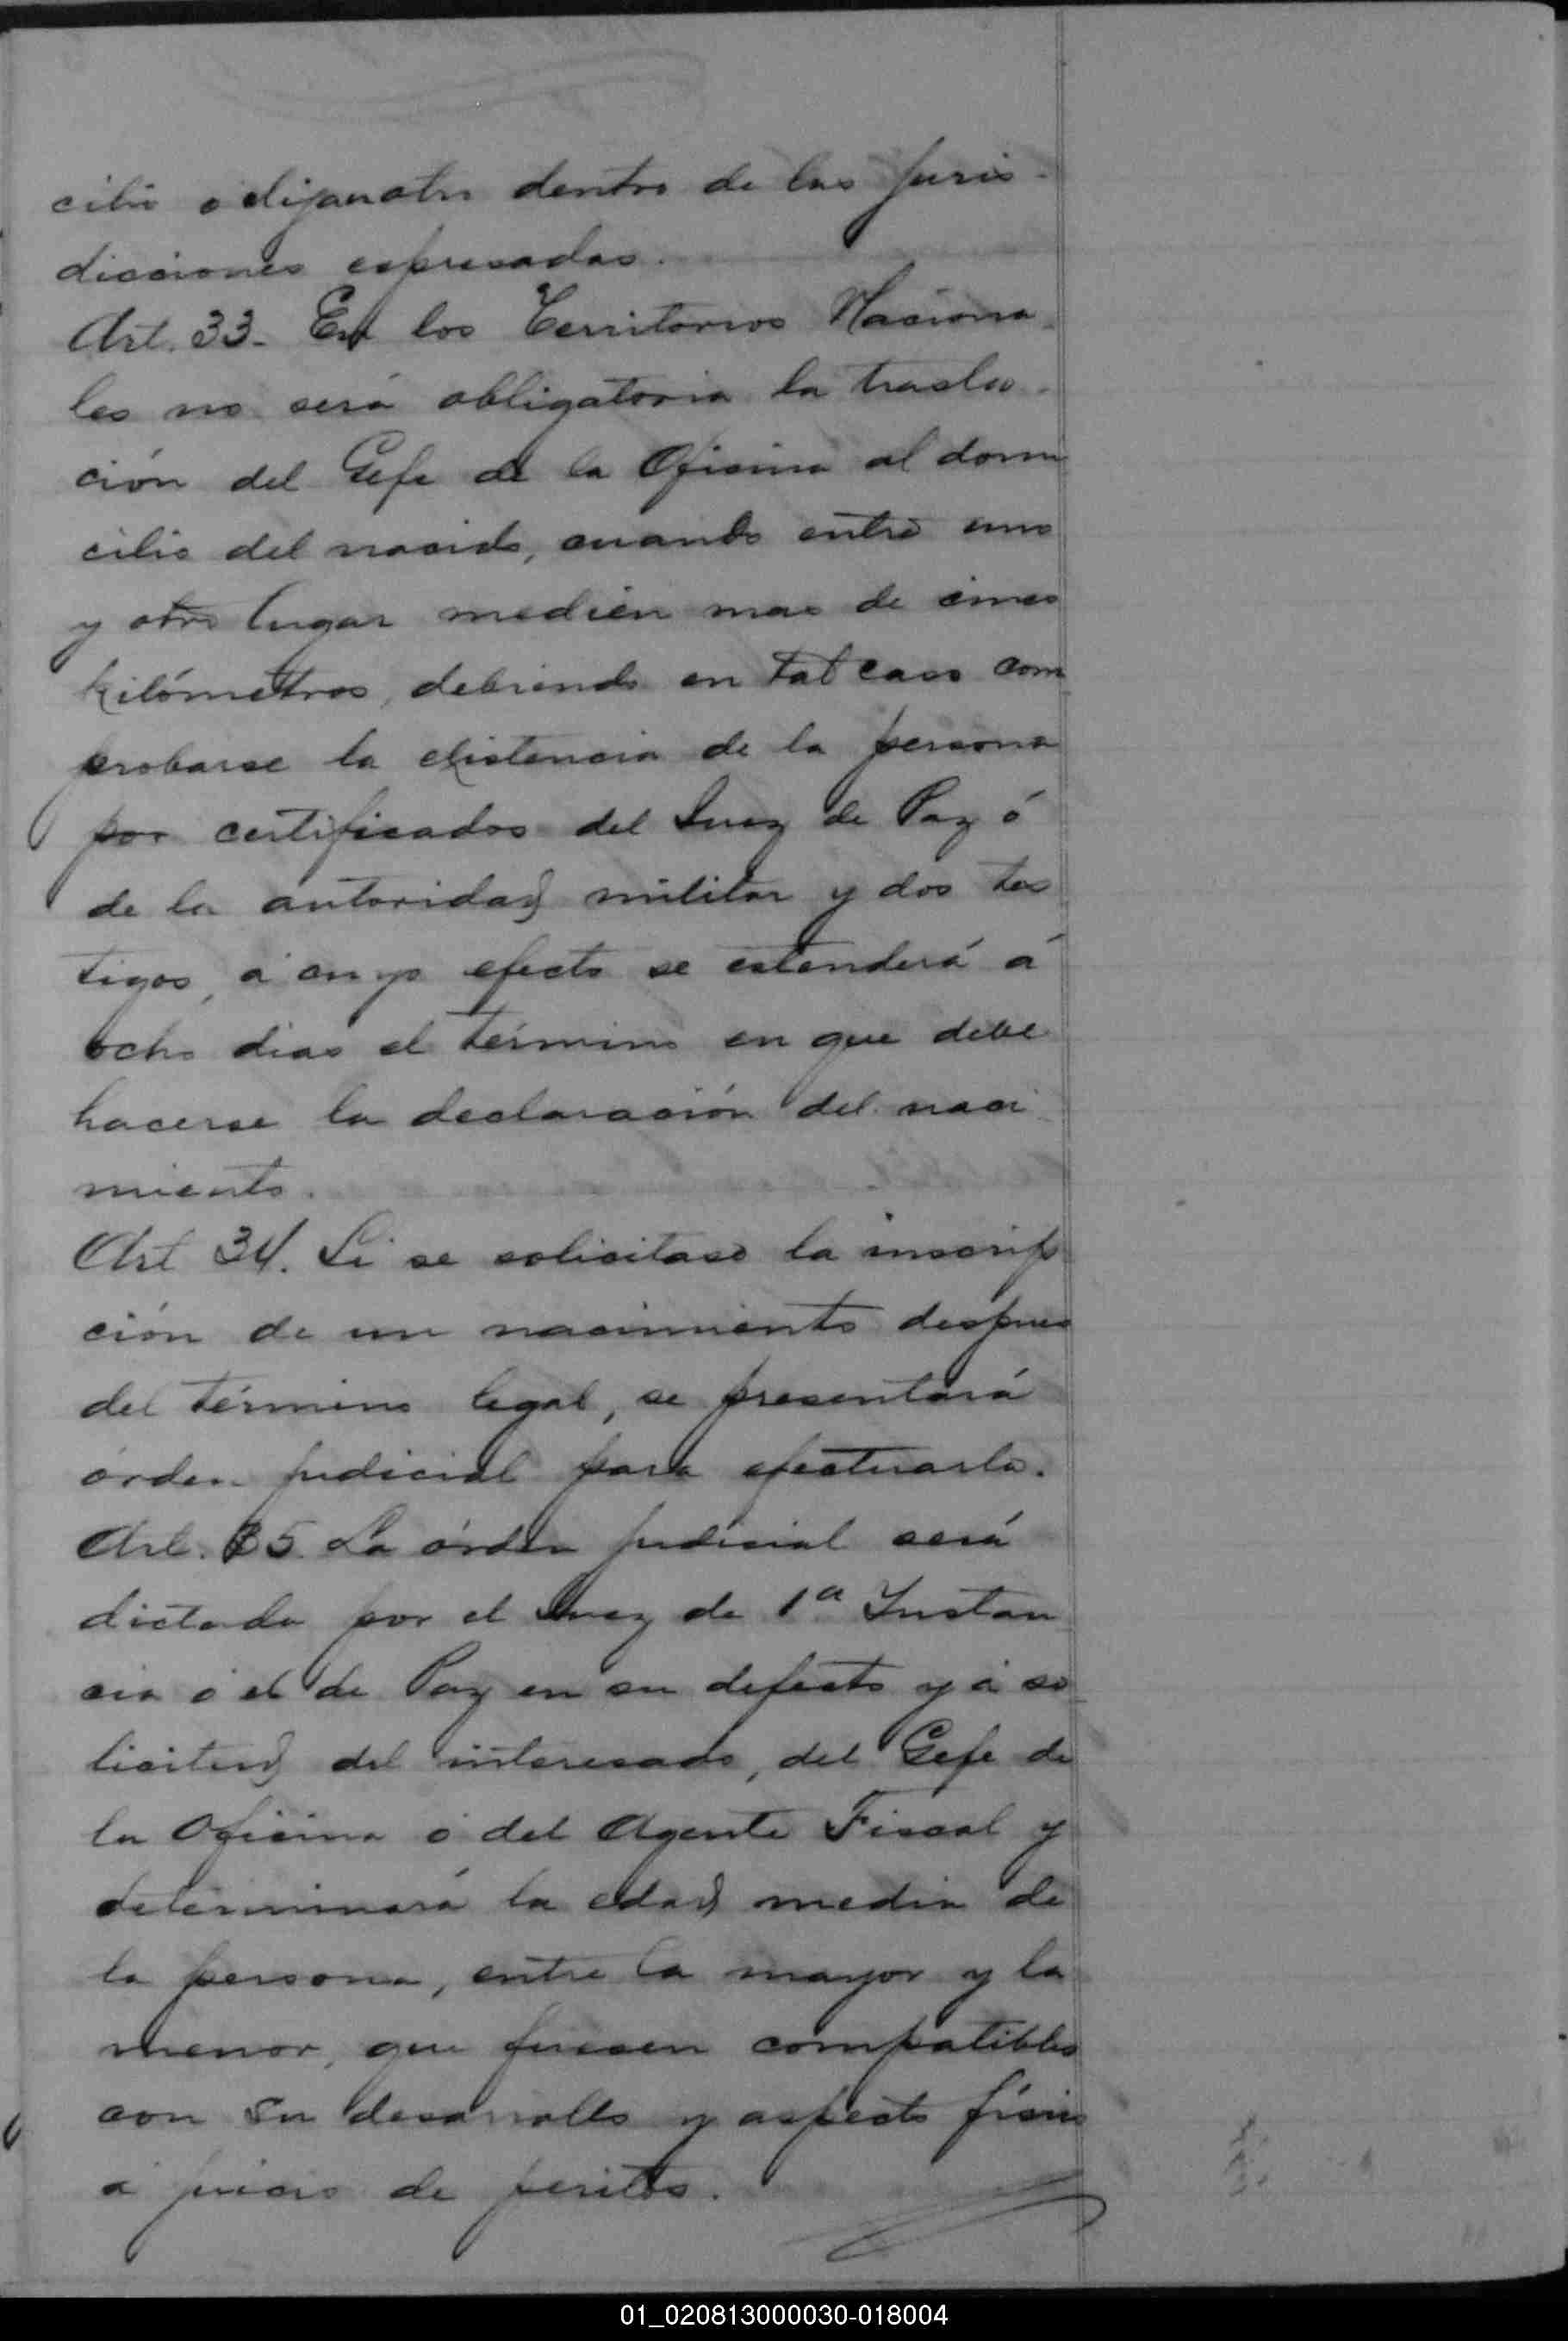 cilio o elijan otro dentro de las juris-
dicciones espresadas.
Art. 33- En los Territorios Naciona-
les no será obligatoria la trasla-
ción del Gefe de la Oficina al domi
cilio del nacido, cuando entre uno
y otro lugar medien mas de cinco
kilómetros, debiendo en tal caso com
probarse la existencia de la persona
por certificados del Juez de Paz ó
de la autoridad militar y dos tes
tigos, á cuyo efecto se estenderá á
ocho dias el término en que debe
hacerse la declaración del naci
miento.
Art 34. Si se solicitase la inscrip
ción de un nacimiento despues
del término legal, se presentará
órden judicial para efectuarla.
Art. 35. La órden judicial será
dictada por el Juez de 1ª Instan
cia ó el de Paz en su defecto y á so
licitud del interesado, del Gefe de
la Oficina ó del Agente Fiscal y
determinará la edad media de
la persona, entre la mayor y la
menor, que fuesen compatibles
con su desarrollo y aspecto físico
á juicio de peritos.
01_020813000030-018004